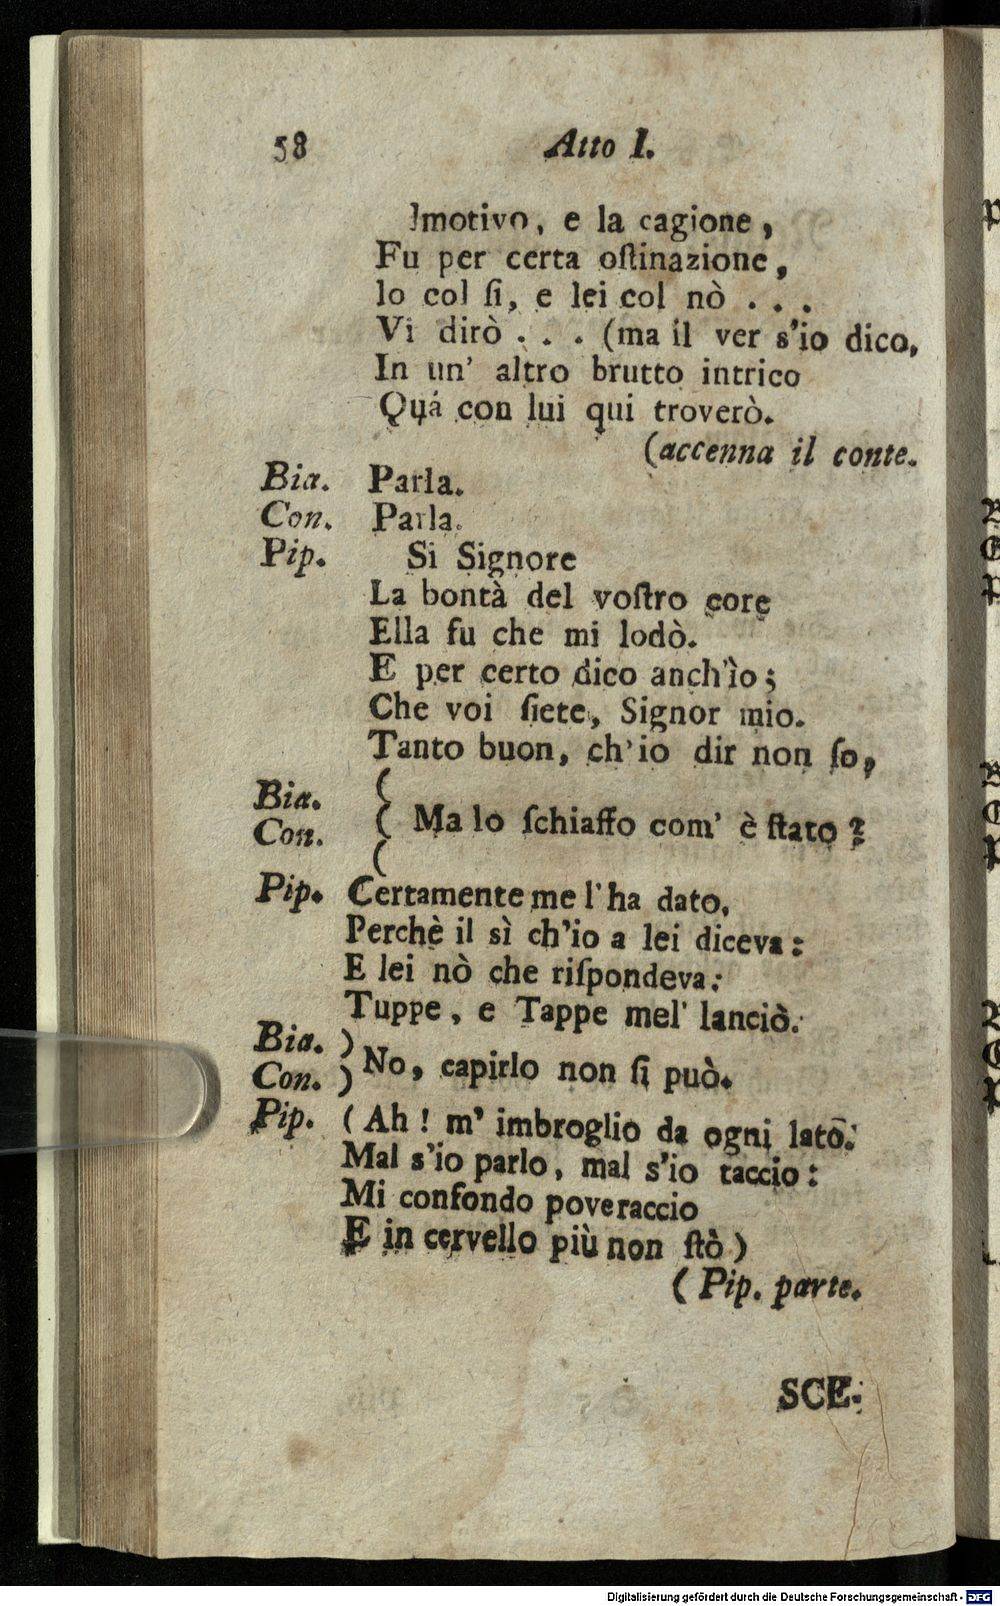 58 Atto I.
lmotivo, e la cagione,
Fu per certa oſtinazione,
Io col ſi, e lei col nò . . .
Vi dirò . . . (ma il ver s'io dico,
In un' altro brutto intrico
Quá con lui qui troverò.
(accenna il conte.
Bia. Parla.
Con. Parla.
Pip. Si Signore
La bontà del voſtro core
Ella fu che mi lodò.
E per certo dico anch'ìo;
Che voi ſiete, Signor mio.
Tanto buon, ch'io dir non ſo,
Bia. (
Con. ( Ma lo ſchiaffo com' è ſtato?
(
Pip. Certamente me l'ha dato,
Perchè il sì ch'io a lei diceva:
E lei nò che riſpondeva:
Tuppe, e Tappe mel' lanciò.
Bia. )
Con. ) No, capirlo non ſi può.
Pip. (Ah! m' imbroglio da ogni lato.
Mal s'io parlo, mal s'io taccio:
Mi confondo poveraccio
E in cervello più non ſtò)
(Pip. parte.
SCE.
Digitalisierung gefördert durch die Deutsche Forschungsgemeinschaft - DFG